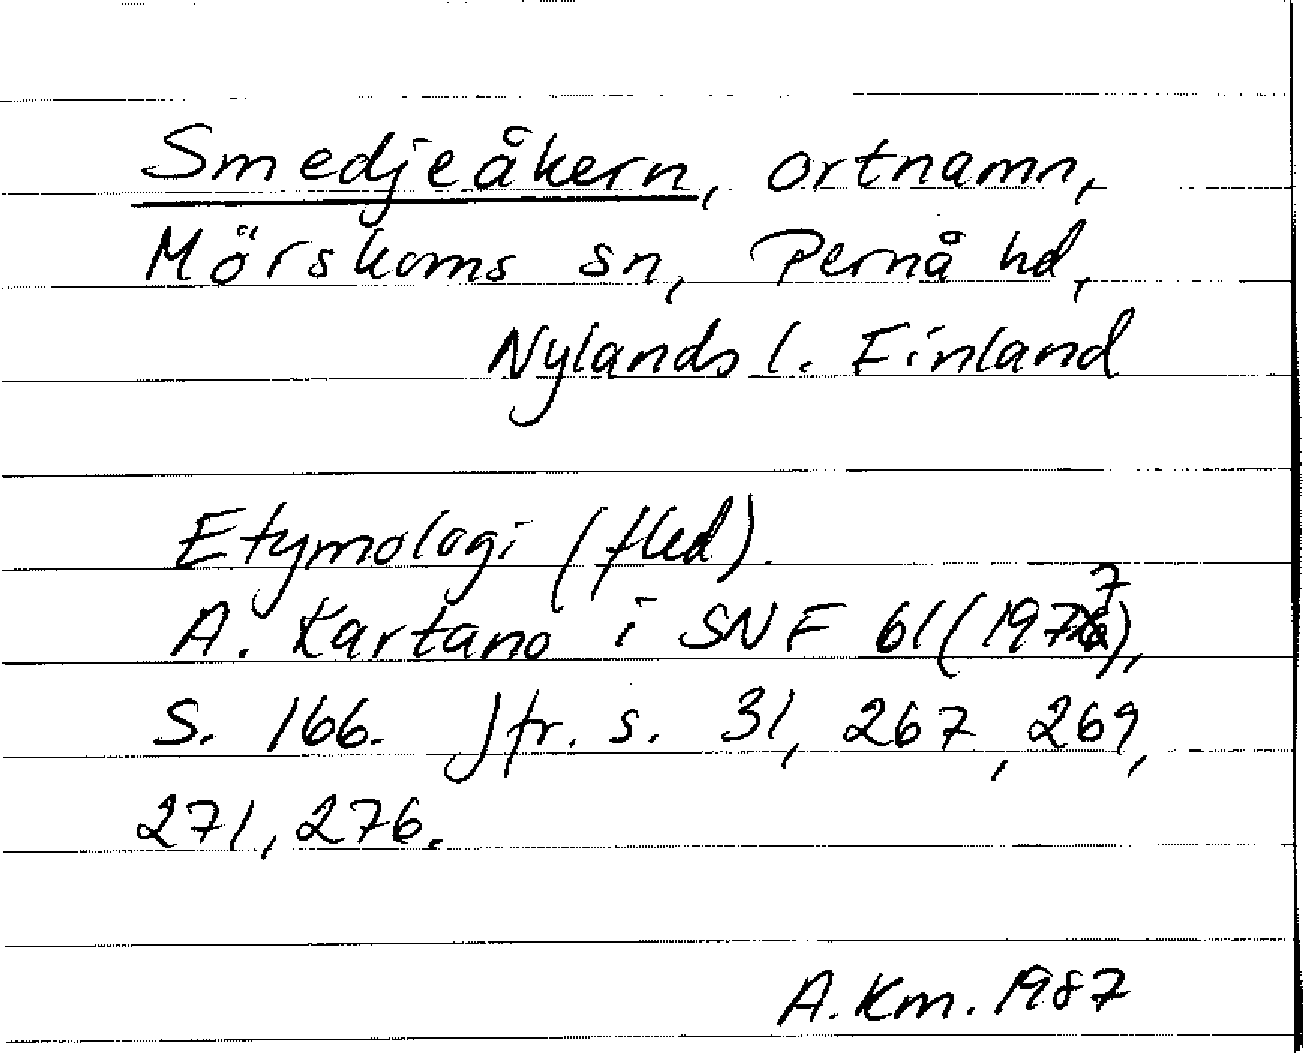 Smedjeåkern, ortnamn,
Mörskoms sn, Pernå hd,
Nylands l. Finland
Etymologi (fled).
A. Kartano i SNF 61 (1977),
S. 166. Jfr. s. 31, 267, 269,
271, 276.
A. Km. 1987